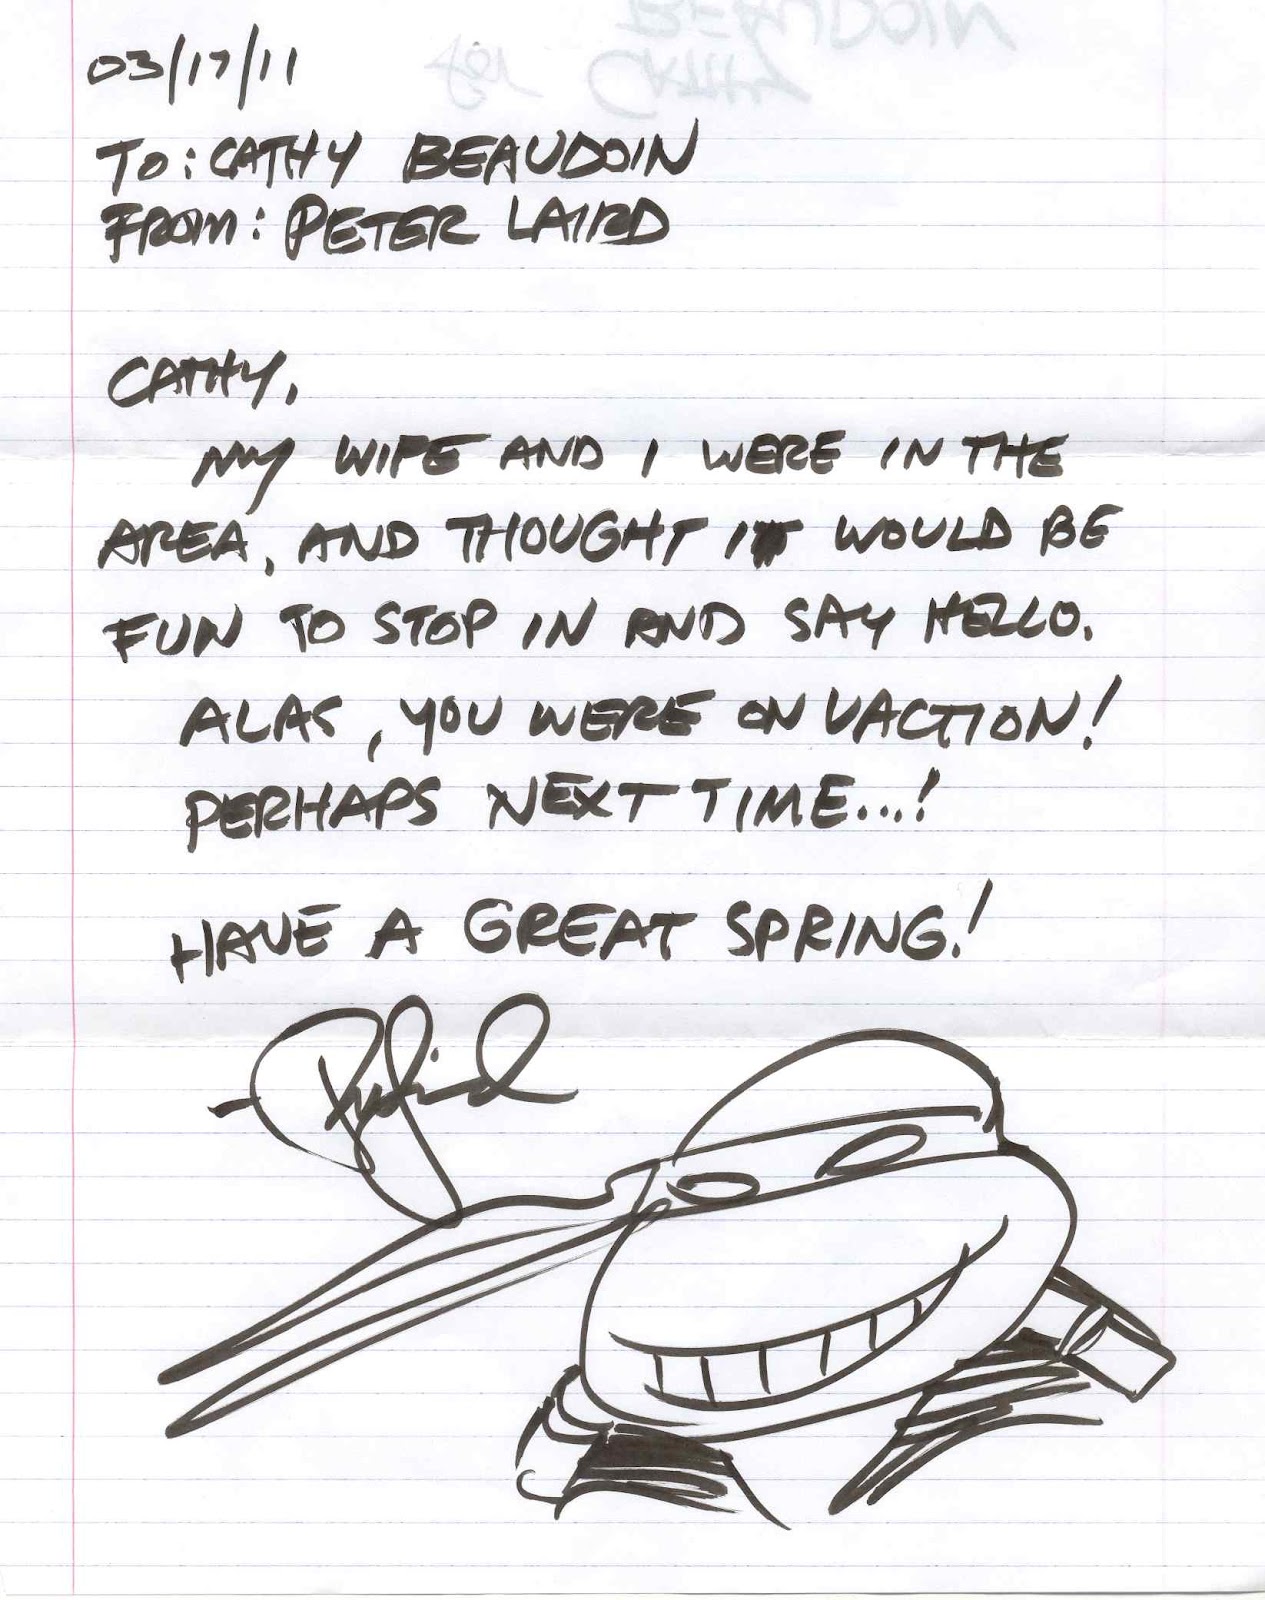 03/17/11
TO: CATHY BEAUDOIN
FROM: PETER LAIRD
CATHY,
MY WIFE AND I WERE IN THE
AREA, AND THOUGHT IT WOULD BE
FUN TO STOP IN AND SAY HELLO.
ALAS, YOU WERE ON VACTION!
PERHAPS NEXT TIME...!
HAVE A GREAT SPRING!